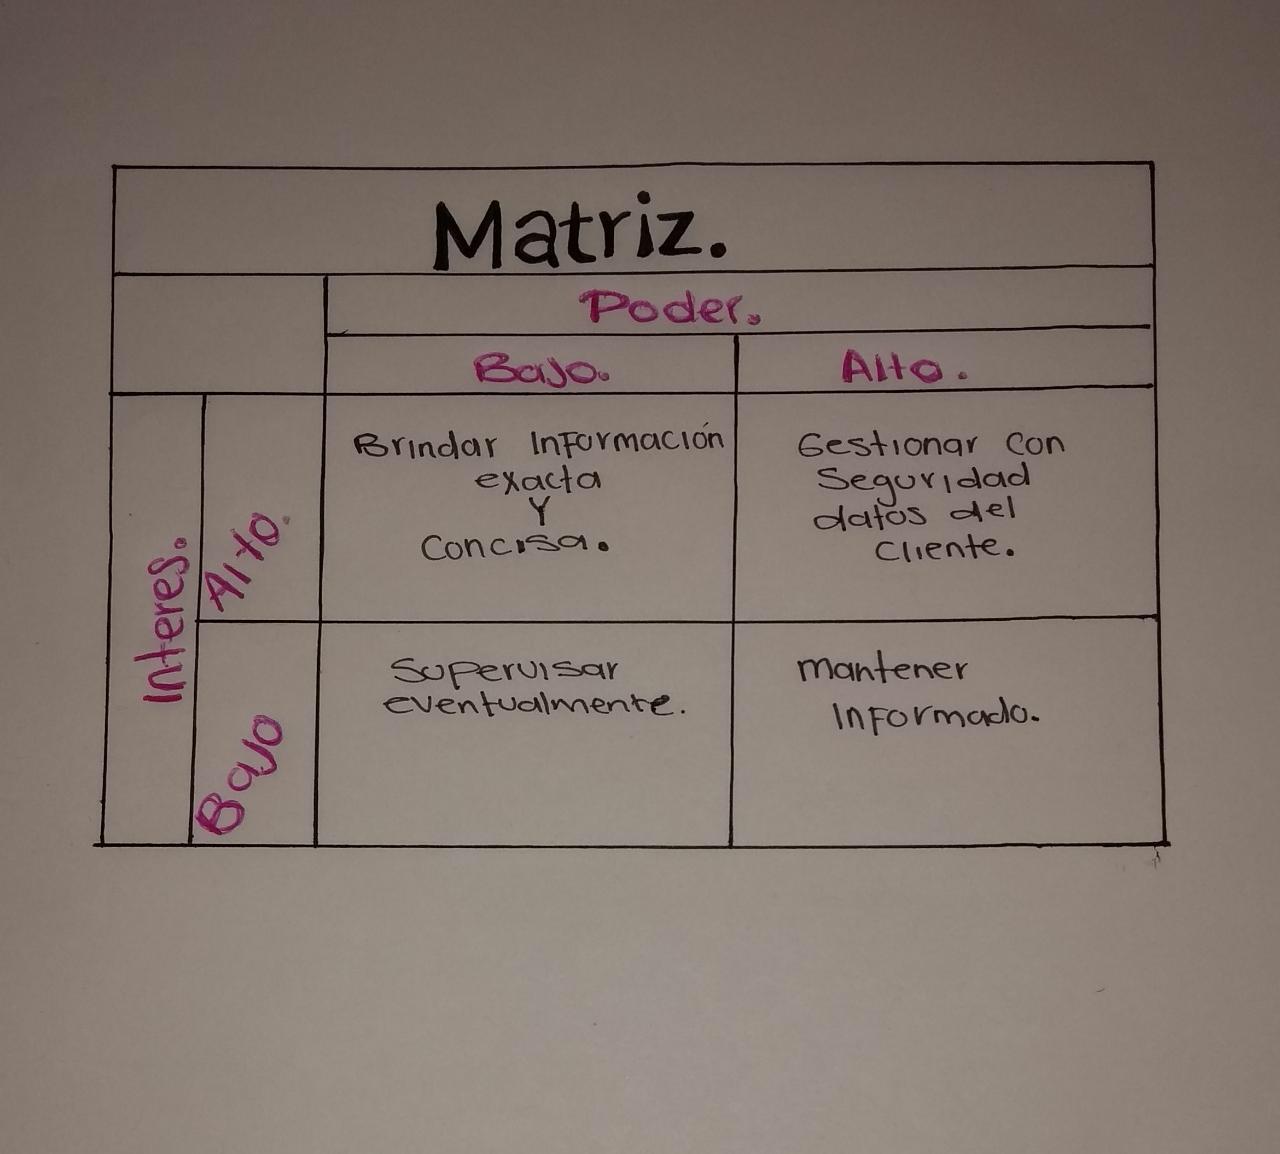 Matriz.
Poder.
Bajo.
Alto.
Interes.
Alto.
Brindar Información
exacta
Y
Concisa.
Gestionar con
Seguridad
datos del
Cliente.
Bajo
Supervisar
eventualmente.
mantener
Informado.